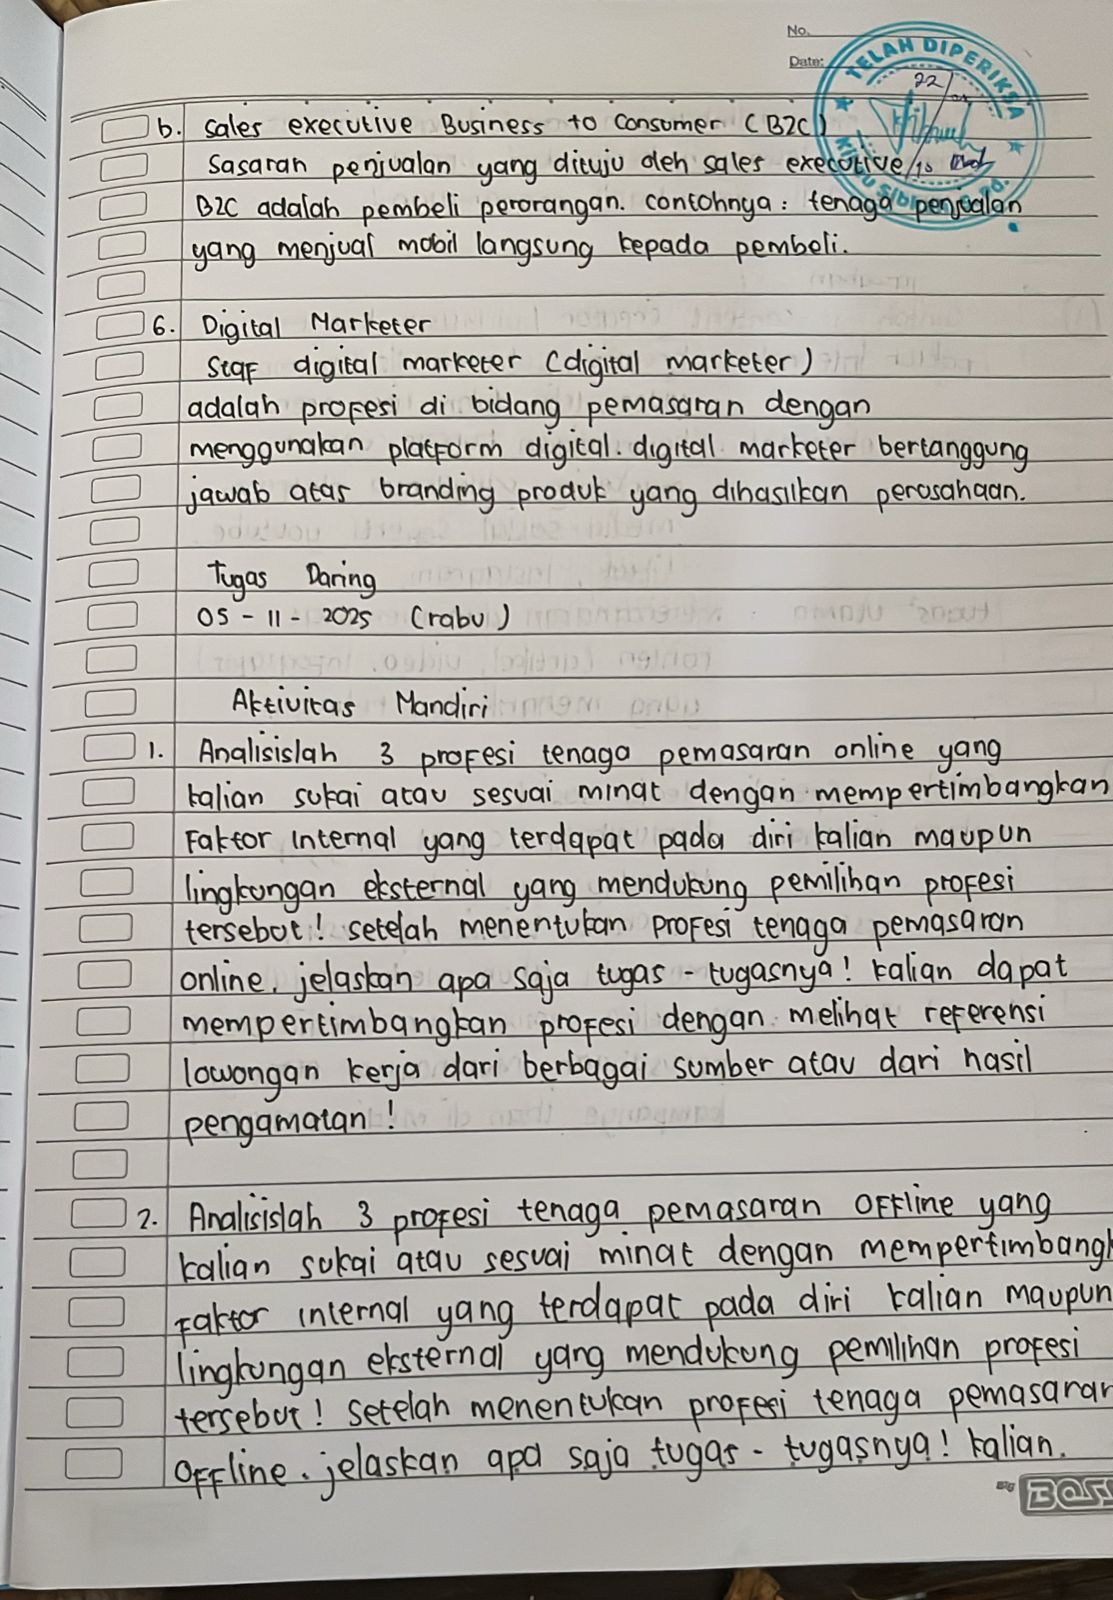 No.
Date:
TELAH DIPERIKSA
22
b. Sales executive Business to Consumer (B2C)
Sasaran penjualan yang dituju oleh sales executive
B2C adalah pembeli perorangan. contohnya : tenaga penjualan
yang menjual mobil langsung kepada pembeli.
6. Digital Marketer
Staf digital marketer (digital marketer)
adalah profesi di bidang pemasaran dengan
menggunakan platform digital. digital marketer bertanggung
jawab atas branding produk yang dihasilkan perusahaan.
Tugas Daring
05 - 11 - 2025 (rabu)
Aktivitas Mandiri
1. Analisislah 3 profesi tenaga pemasaran online yang
kalian sukai atau sesuai minat dengan mempertimbangkan
Faktor Internal yang terdapat pada diri kalian maupun
lingkungan eksternal yang mendukung pemilihan profesi
tersebut! setelah menentukan profesi tenaga pemasaran
online, jelaskan apa saja tugas - tugasnya! kalian dapat
mempertimbangkan profesi dengan melihat referensi
lowongan kerja dari berbagai sumber atau dari hasil
pengamatan!
2. Analisislah 3 profesi tenaga pemasaran offline yang
kalian sukai atau sesuai minat dengan mempertimbangk
Faktor internal yang terdapat pada diri kalian maupun
lingkungan eksternal yang mendukung pemilihan profesi
tersebut! setelah menentukan profesi tenaga pemasaran
offline, jelaskan apa saja tugas - tugasnya! kalian.
BOSS